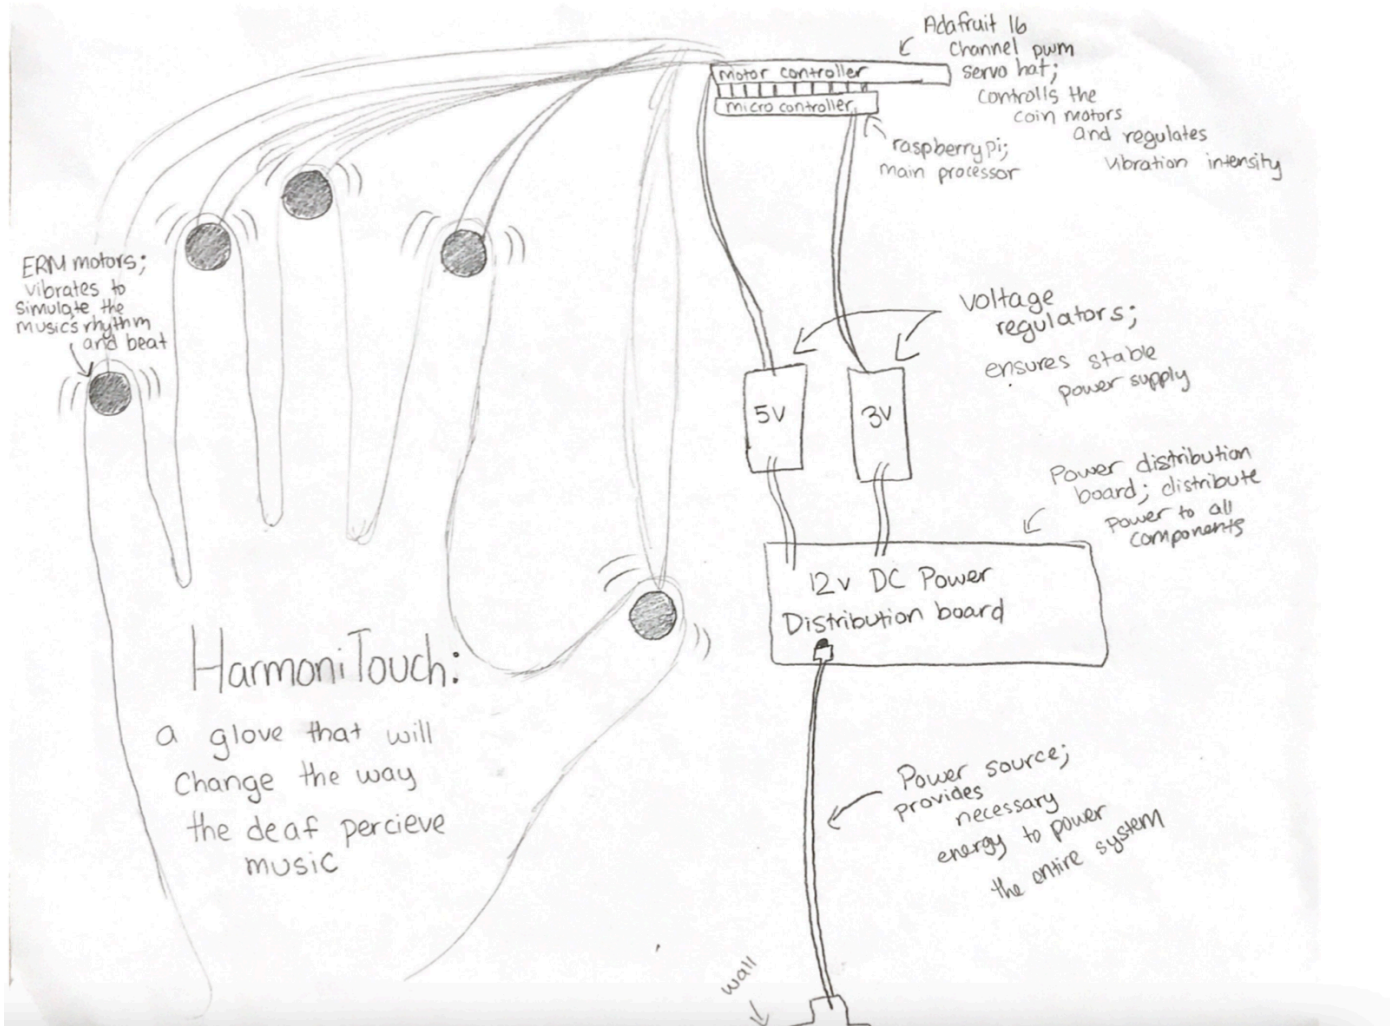 Adafruit 16
Channel pwm
servo hat;
controlls the
coin motors
and regulates
vibration intensity
motor controller
micro controller
raspberry pi;
main processor
ERM motors;
vibrates to
simulate the
music's rhythm
and beat
voltage
regulators;
ensures stable
power supply
5V
3V
Power distribution
board; distribute
power to all
components
12v DC Power
Distribution board
HarmoniTouch:
a glove that will
change the way
the deaf percieve
music
Power source;
provides
necessary
energy to power
the entire system
wall